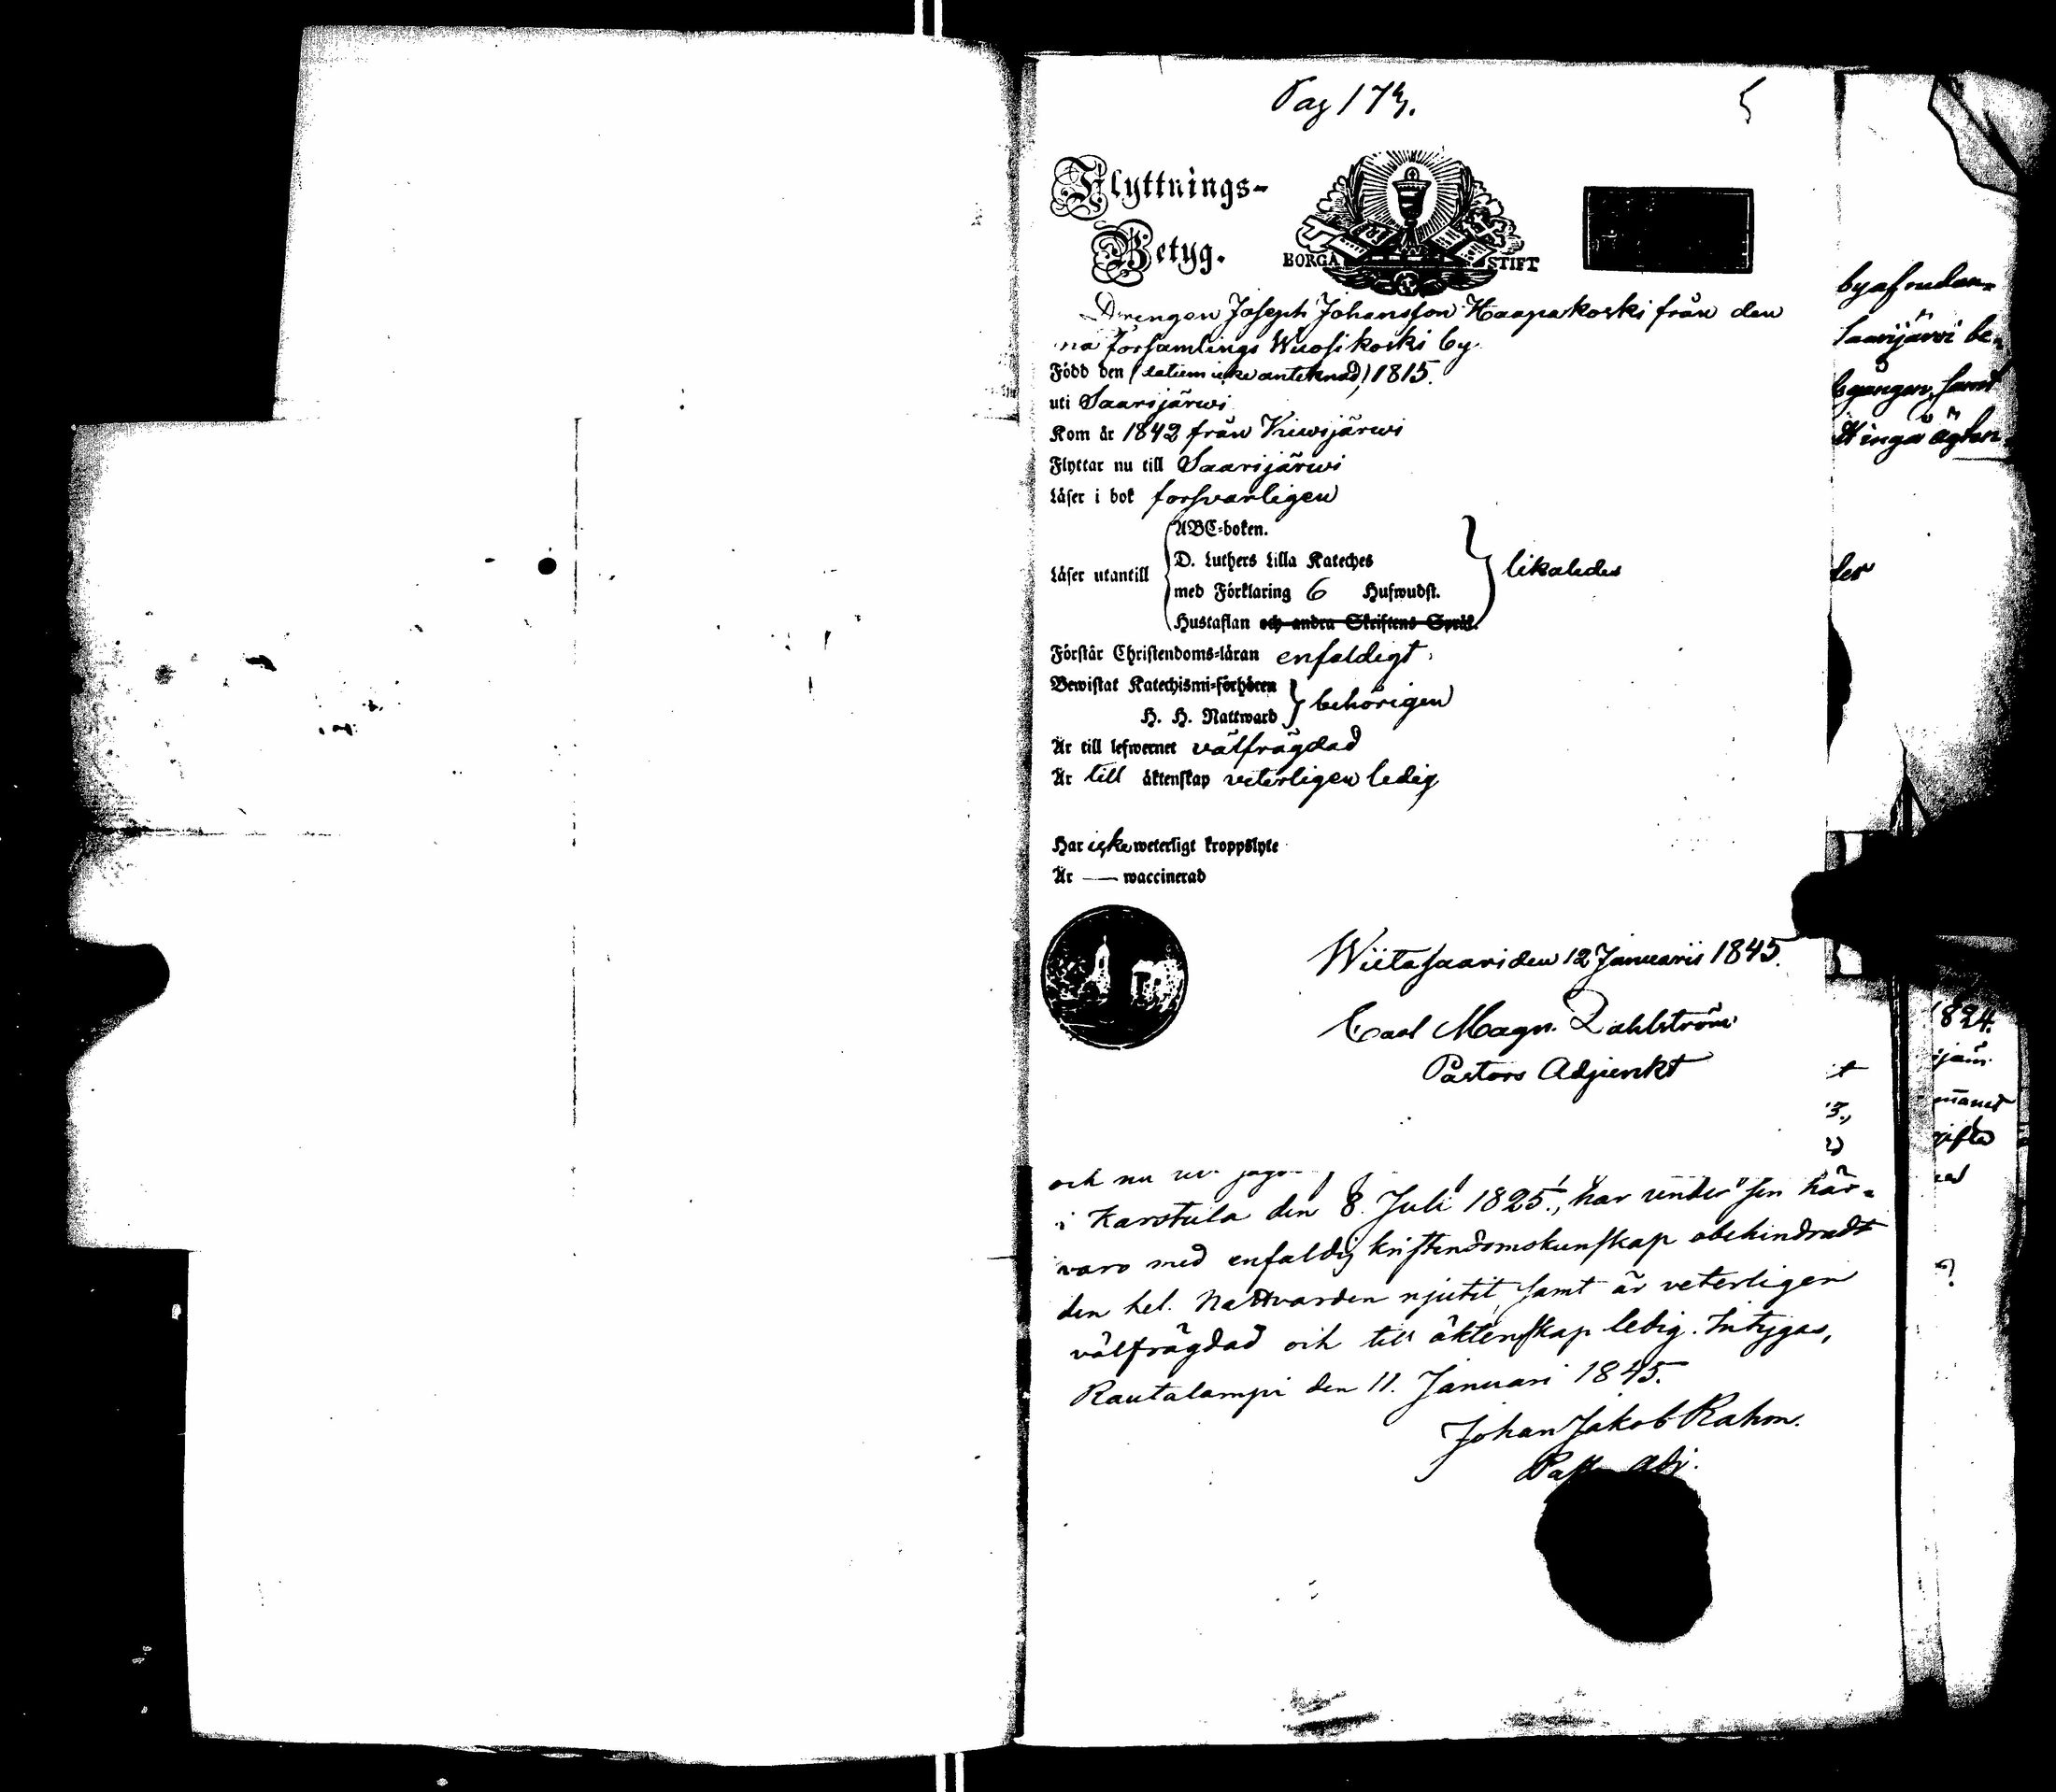 Pag 173.
5
Flyttnings-
Betyg.
BORGÅ STIFT
Drengen Joseph Johansson Haapakoski från den
na församlings Wuosikoski by.
Född den (datum icke anteknad) 1815.
uti Saarijärwi
Kom år 1842 från Kiwijärwi
Flyttar nu till Saarijärwi
Läser i bok forsvarligen
ABC-boken.
D. Luthers Lilla Kateches
Läser utantill
likaledes
med Förklaring 6 Hufwudst.
Hustaflan och andra Skriftens Språk.
Förstår Christendoms-läran enfaldigt
Bewistat Katechismi-förhören
behörigen
H. H. Nattward
Är till lefwernet välfrägdad
Är till äktenskap veterligen ledig
Har icke weterligt kroppslyte
Är — waccinerad
Wiitasaari den 12 Januarii 1845.
Carl Magn. Dahlström
Pastors Adjunkt
och nu
i Karstula den 8. Juli 1825., har under sen här-
varo med enfaldig kristendomskunskap obehindradt
den hel. Nattvarden njutit, samt är veterligen
välfrägdad och till äktenskap ledig. Intygas,
Rautalampi den 11. Januari 1845.
Johan Jakob Rahm.
Past. Adj.
Saarijärvi be-
1824.